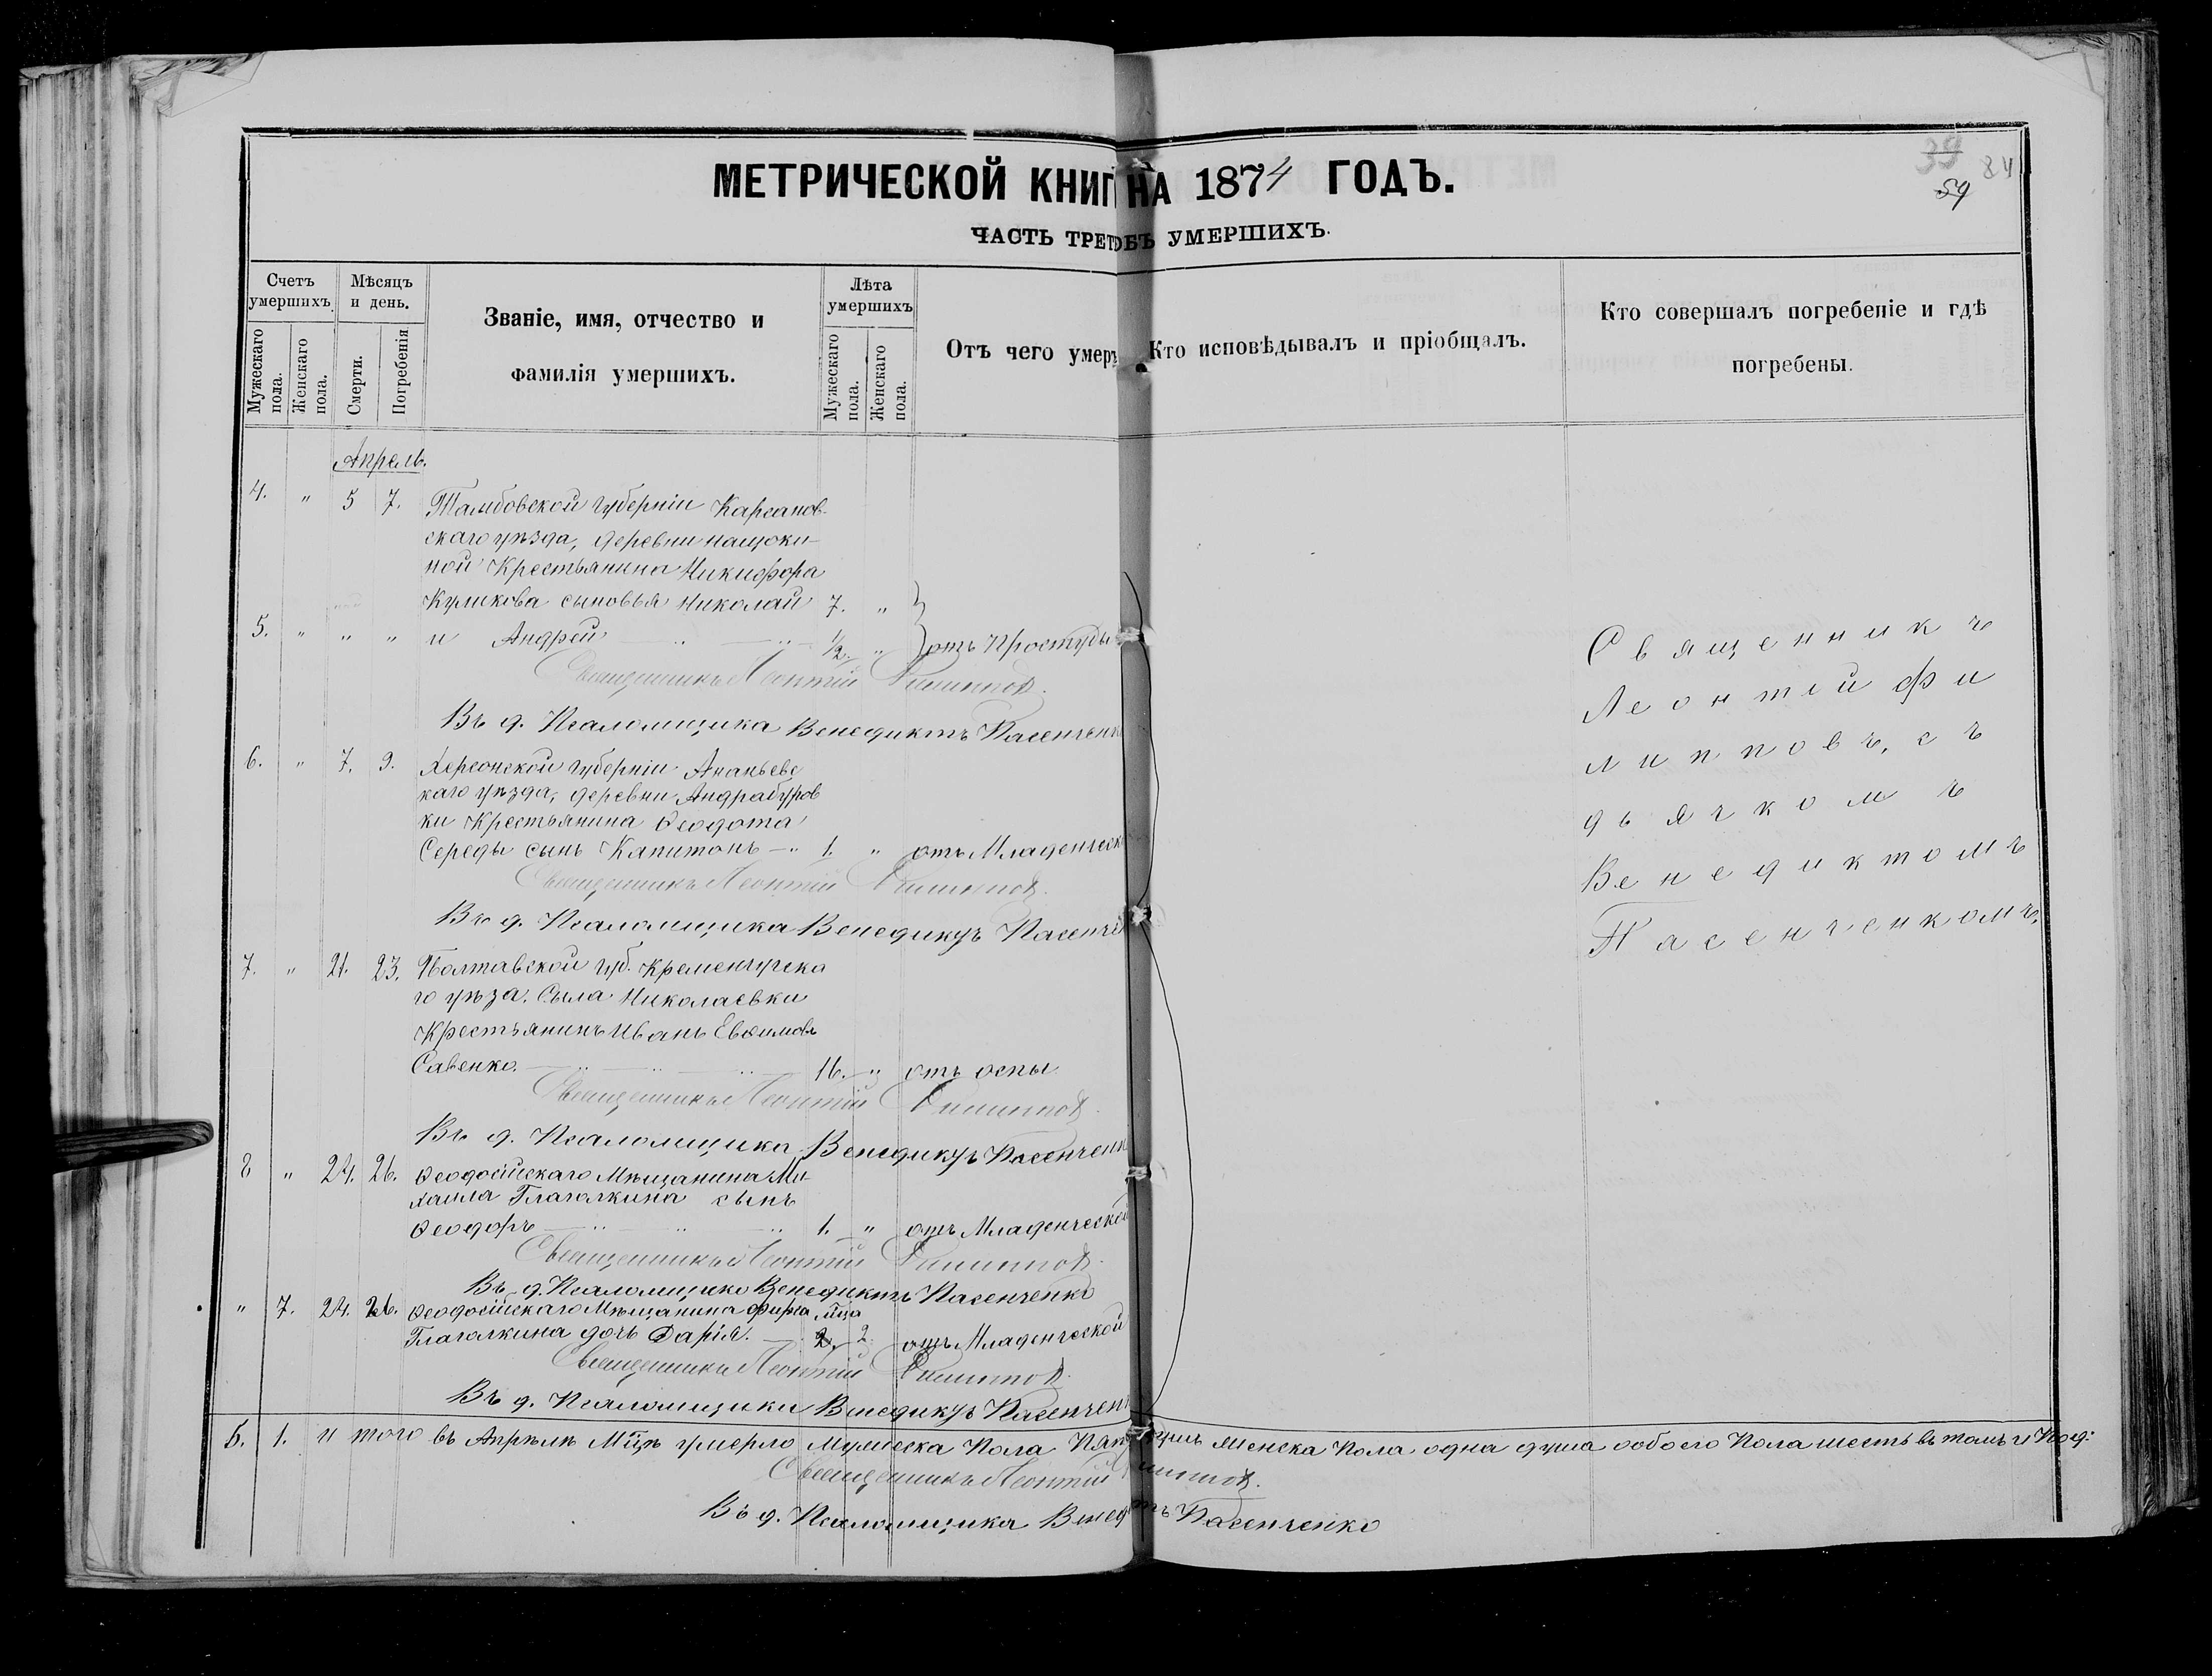 МЕТРИЧЕСКОЙ КНИГ НА 1874 ГОДЪ.
39
84
59
ЧАСТЬ ТРЕТ ОБЪ УМЕРШИХЪ.
Счетъ умершихъ.
Мужескаго пола.
Женскаго пола.
Мѣсяцъ и день.
Смерти.
Погребенія
Званіе, имя, отчество и
фамилія умершихъ.
Лѣта умершихъ
Мужескаго пола.
Женскаго пола.
Отъ чего умеръ
Кто исповѣдывалъ и пріобщалъ.
Кто совершалъ погребеніе и гдѣ
погребены.
Апрель.
4. " 5 7. Тамбовской губерніи Карсанов-
скаго уѣзда, деревни нащоки-
ной Крестьянина Никифора
Куликова сыновья Николай 7. "
5. " " " и Андрей 1/2. " отъ простуды
Священникъ Леонтій Филиповъ.
Въ д. Псаломщика Венедиктъ Пасенченк
6. " 7. 9. Херсонской губерніи Ананьевс
каго уѣзда, деревни Андрабуров
ки Крестьянина Ѳеодота
Середы сынъ Капитонъ 1. " отъ Младенческ
Священникъ Леонтій Филиповъ.
Въ д. Псаломщика Венедиктъ Пасенче
7. " 21. 23. Полтавской губ. Кременчугска
го уѣзда. Сыла Николаевки
Крестьянинъ Иванъ Евѳимовъ
Савенко. 16. " отъ оспы
Священникъ Леонтій Филиповъ.
Въ д. Псаломщика Венедиктъ Пасенченк
8 " 24. 26. Ѳеодосійскаго Мѣщанина Ми-
хаила Глаголкина сынъ
Ѳеодоръ 1. " отъ Младенческой
Священникъ Леонтій Филиповъ.
Въ д. Псаломщика Венедиктъ Пасенченко
" 7. 24. 26. Ѳеодосійскаго Мѣщанина
Глаголкина дочь Дарія. 2. 2. отъ Младенческой
Священникъ Леонтій Филиповъ.
Въ д. Псаломщика Венедиктъ Пасенчен
5. 1. И того въ Апрѣлѣ Мцѣ умерло Мужеска Пола Пять душъ Женска Пола одна душа обоего Пола шесть въ томъ и Под:
Священникъ Леонтій Филиповъ.
Въ д. Псаломщика Венед тъ Пасенченко
Священникъ
Леонтій Фи
липповъ, съ
дьячкомъ
Венедиктомъ
Пасенченкомъ.